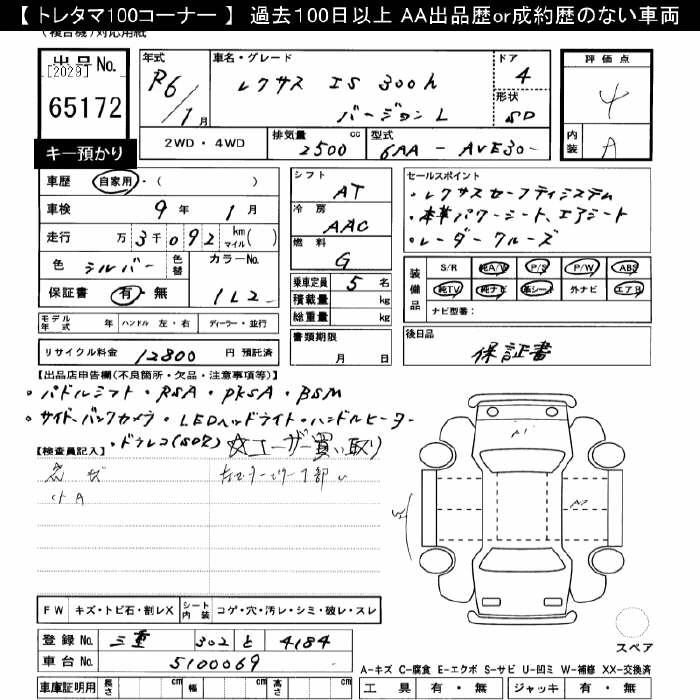 【 トレタマ100コーナー 】 過去100日以上 AA出品歴or成約歴のない車両
(複合機)対応用紙
出品No.
[2029]
65172
キー預かり
年式 R6/1月
車名・グレード レクサス IS 300h
バージョンL
ドア 4
形状 SD
2WD・4WD
排気量 2500 cc
型式 6AA - AVE30-
評価点 4
内装 A
車歴 自家用・( )
車検 9年 1月
走行 万3千092 km マイル( )
色 シルバー 色替 カラーNo.
保証書 有・無 1L2
モデル年式 年 ハンドル 左・右 ディーラー・並行
リサイクル料金 12800 円 預託済
シフト AT
冷房 AAC
燃料 G
乗車定員 5 名
積載量 kg
総重量 kg
書類期限
月 日
セールスポイント
・レクサスセーフティシステム
・本革パワーシート、エアシート
・レーダークルーズ
装備品 S/R 純A/W P/S P/W ABS
純TV 純ナビ 革シート 外ナビ エアB
ナビ型番:
後日品
保証書
【出品店申告欄(不良箇所・欠品・注意事項等)】
・パドルシフト・RSA・PKSA・BSM
・サイド、バックカメラ・LEDヘッドライト・ハンドルヒーター
・ドラレコ(SD欠) ☆ユーザー買い取り
【検査員記入】
小A
A1
A2
FW キズ・トビ石・割レX シート内装 コゲ・穴・汚レ・シミ・破レ・スレ
登録No. 三重 302 と 4184
車台No. 5100069
車庫証明用 長さ cm 幅 cm 高さ cm
スペア
A-キズ C-腐食 E-エクボ S-サビ U-凹ミ W-補修 XX-交換済
工具 有・無 ジャッキ 有・無